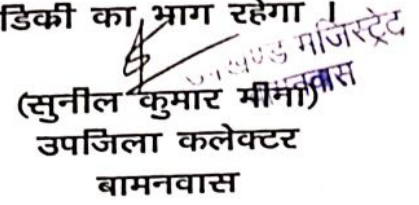 डिकी का भाग रहेगा ।
उपखण्ड मजिस्ट्रेट
बामनवास
(सुनील कुमार मीना)
उपजिला कलेक्टर
बामनवास